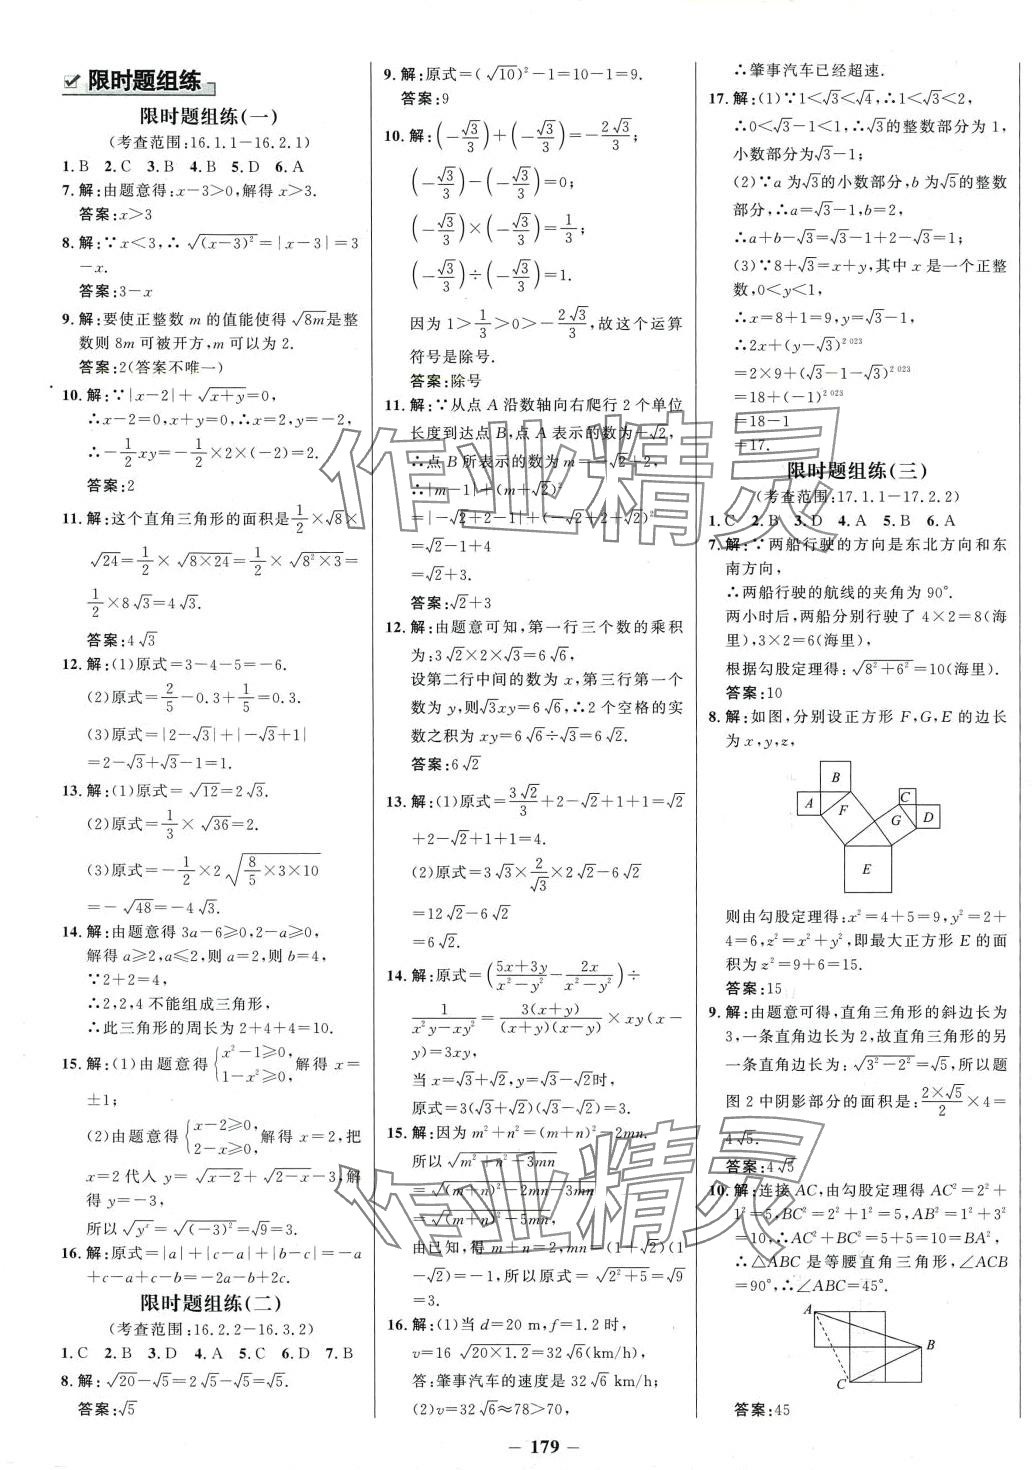 限时题组练
限时题组练(一)
(考查范围:16.1.1－16.2.1)
1.B 2.C 3.B 4.B 5.D 6.A
7.解:由题意得:x－3＞0,解得 x＞3.
答案:x＞3
8.解:∵x＜3,∴√(x－3)²＝|x－3|＝3
－x.
答案:3－x
9.解:要使正整数 m 的值能使得√8m是整
数则 8m 可被开方,m 可以为 2.
答案:2(答案不唯一)
10.解:∵|x－2|＋√x＋y＝0,
∴x－2＝0,x＋y＝0,∴x＝2,y＝－2,
∴－1/2xy＝－1/2×2×(－2)＝2.
答案:2
11.解:这个直角三角形的面积是1/2×√8×
√24＝1/2×√8×24＝1/2×√8²×3＝
1/2×8√3＝4√3.
答案:4√3
12.解:(1)原式＝3－4－5＝－6.
(2)原式＝2/5－0.3＋1/5＝0.3.
(3)原式＝|2－√3|＋|－√3＋1|
＝2－√3＋√3－1＝1.
13.解:(1)原式＝√12＝2√3.
(2)原式＝1/3×√36＝2.
(3)原式＝－1/2×2√8/5×3×10
＝－√48＝－4√3.
14.解:由题意得 3a－6≥0,2－a≥0,
解得 a≥2,a≤2,则 a＝2,则 b＝4,
∵2＋2＝4,
∴2,2,4 不能组成三角形,
∴此三角形的周长为 2＋4＋4＝10.
15.解:(1)由题意得{x²－1≥0, 1－x²≥0,解得 x＝
±1;
(2)由题意得{x－2≥0, 2－x≥0,解得 x＝2,把
x＝2 代入 y＝√x－2＋√2－x－3,解
得 y＝－3,
所以√y²＝√(－3)²＝√9＝3.
16.解:原式＝|a|＋|c－a|＋|b－c|＝－a
＋c－a＋c－b＝－2a－b＋2c.
限时题组练(二)
(考查范围:16.2.2－16.3.2)
1.C 2.B 3.D 4.A 5.C 6.D 7.B
8.解:√20－√5＝2√5－√5＝√5.
答案:√5
9.解:原式＝(√10)²－1＝10－1＝9.
答案:9
10.解:(－√3/3)＋(－√3/3)＝－2√3/3;
(－√3/3)－(－√3/3)＝0;
(－√3/3)×(－√3/3)＝1/3;
(－√3/3)÷(－√3/3)＝1.
因为 1＞1/3＞0＞－2√3/3,故这个运算
符号是除号.
答案:除号
11.解:∵从点 A 沿数轴向右爬行 2 个单位
长度到达点 B,点 A 表示的数为－√2,
∴点 B 所表示的数为 m＝－√2＋2,
∴|m－1|＋(m＋√2)²
＝|－√2＋2－1|＋(－√2＋2＋√2)²
＝√2－1＋4
＝√2＋3.
答案:√2＋3
12.解:由题意可知,第一行三个数的乘积
为:3√2×2×√3＝6√6,
设第二行中间的数为 x,第三行第一个
数为 y,则√3xy＝6√6,∴2 个空格的实
数之积为 xy＝6√6÷√3＝6√2.
答案:6√2
13.解:(1)原式＝3√2/3＋2－√2＋1＋1＝√2
＋2－√2＋1＋1＝4.
(2)原式＝3√3×2/√3×2√2－6√2
＝12√2－6√2
＝6√2.
14.解:原式＝(5x＋3y/x²－y²－2x/x²－y²)÷
1/x²y－xy²＝3(x＋y)/(x＋y)(x－y)×xy(x－
y)＝3xy,
当 x＝√3＋√2,y＝√3－√2时,
原式＝3(√3＋√2)(√3－√2)＝3.
15.解:因为 m²＋n²＝(m＋n)²－2mn.
所以√m²＋n²－3mn
＝√(m＋n)²－2mn－3mn
＝√(m＋n)²－5mn,
由已知,得 m＋n＝2,mn＝(1＋√2)(1
－√2)＝－1,所以原式＝√2²＋5＝√9
＝3.
16.解:(1)当 d＝20 m,f＝1.2 时,
v＝16√20×1.2＝32√6(km/h),
答:肇事汽车的速度是 32√6 km/h;
(2)v＝32√6≈78＞70,
∴肇事汽车已经超速.
17.解:(1)∵1＜√3＜√4,∴1＜√3＜2,
∴0＜√3－1＜1,∴√3的整数部分为 1,
小数部分为√3－1;
(2)∵a 为√3的小数部分,b 为√5的整数
部分,∴a＝√3－1,b＝2,
∴a＋b－√3＝√3－1＋2－√3＝1;
(3)∵8＋√3＝x＋y,其中 x 是一个正整
数,0＜y＜1,
∴x＝8＋1＝9,y＝√3－1,
∴2x＋(y－√3)²⁰²³
＝2×9＋(√3－1－√3)²⁰²³
＝18＋(－1)²⁰²³
＝18－1
＝17.
限时题组练(三)
(考查范围:17.1.1－17.2.2)
1.C 2.B 3.D 4.A 5.B 6.A
7.解:∵两船行驶的方向是东北方向和东
南方向,
∴两船行驶的航线的夹角为 90°.
两小时后,两船分别行驶了 4×2＝8(海
里),3×2＝6(海里),
根据勾股定理得:√8²＋6²＝10(海里).
答案:10
8.解:如图,分别设正方形 F,G,E 的边长
为 x,y,z,
B
A F C
G D
E
则由勾股定理得:x²＝4＋5＝9,y²＝2＋
4＝6,z²＝x²＋y²,即最大正方形 E 的面
积为 z²＝9＋6＝15.
答案:15
9.解:由题意可得,直角三角形的斜边长为
3,一条直角边长为 2,故直角三角形的另
一条直角边长为:√3²－2²＝√5,所以题
图 2 中阴影部分的面积是:2×√5/2×4＝
4√5.
答案:4√5
10.解:连接 AC,由勾股定理得 AC²＝2²＋
1²＝5,BC²＝2²＋1²＝5,AB²＝1²＋3²
＝10,∴AC²＋BC²＝5＋5＝10＝BA²,
∴△ABC 是等腰直角三角形,∠ACB
＝90°,∴∠ABC＝45°.
A
B
C
答案:45
－ 179 －
作业精灵
作业精灵